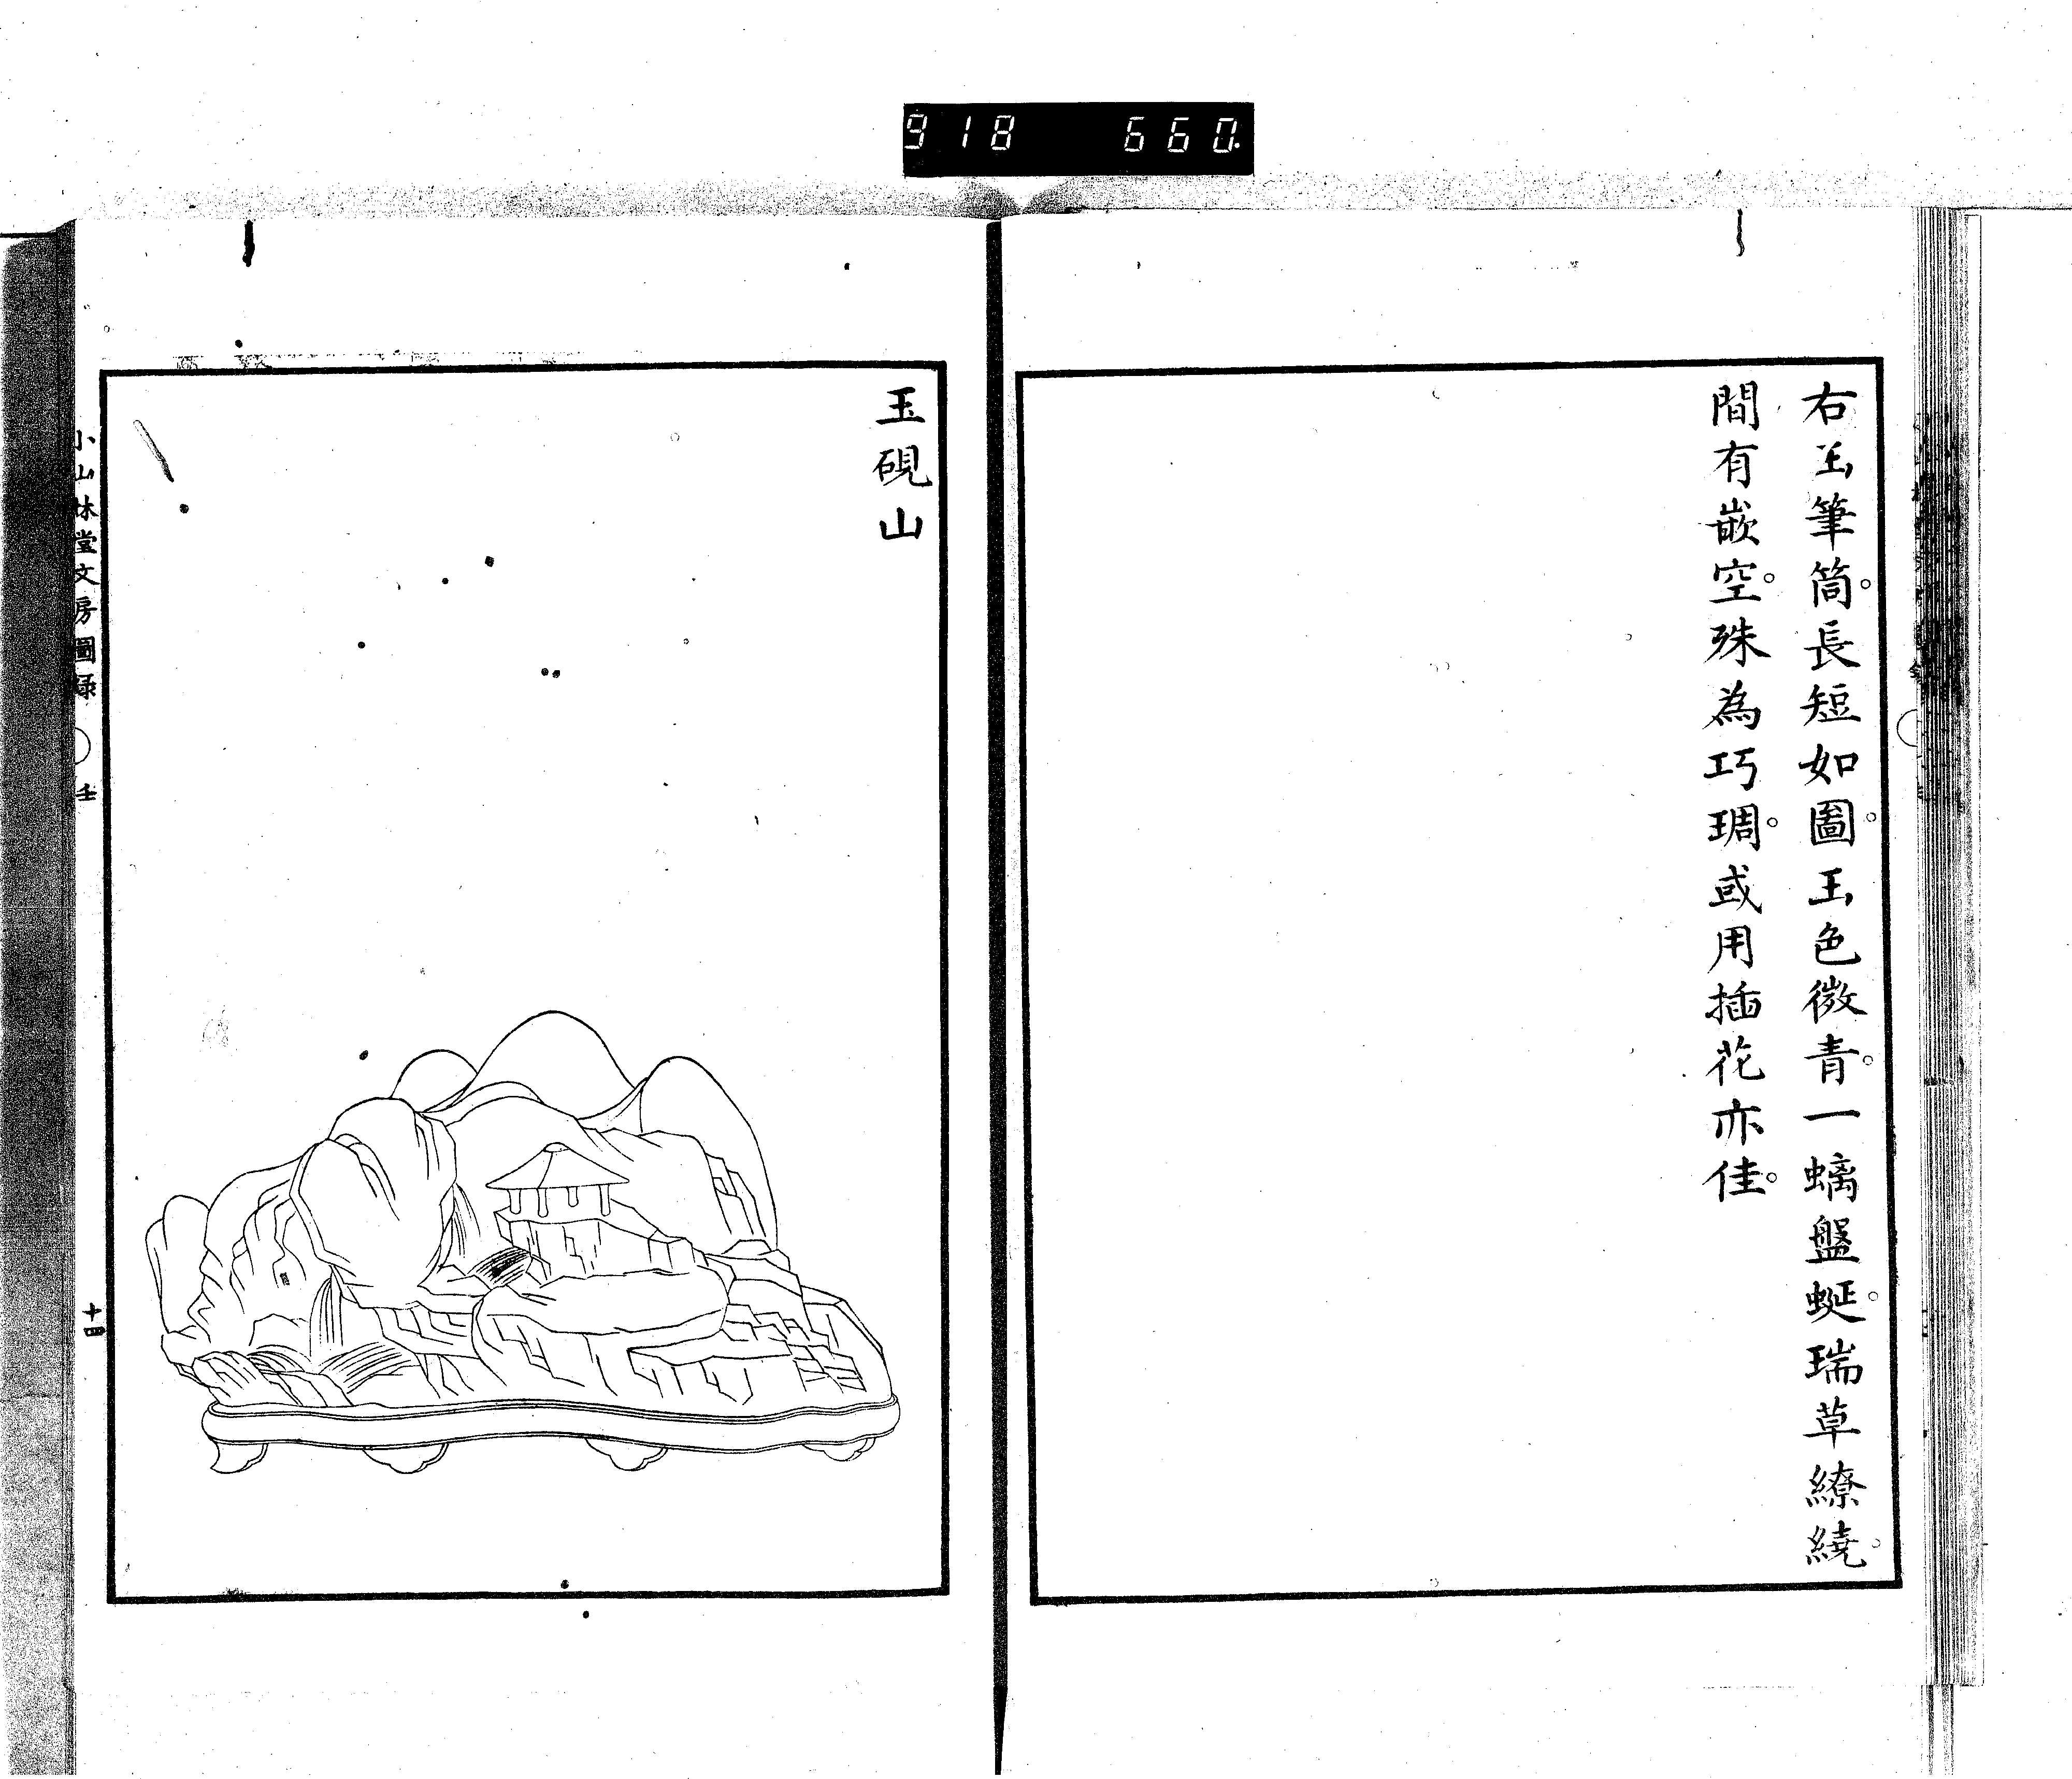 918 660.
右玉筆筒。長短如圖。玉色微青。一螭盤蜒。瑞草繚繞。
間有嵌空。殊為巧琱。或用插花亦佳。
玉硯山
小山林堂文房圖録 壬
十四